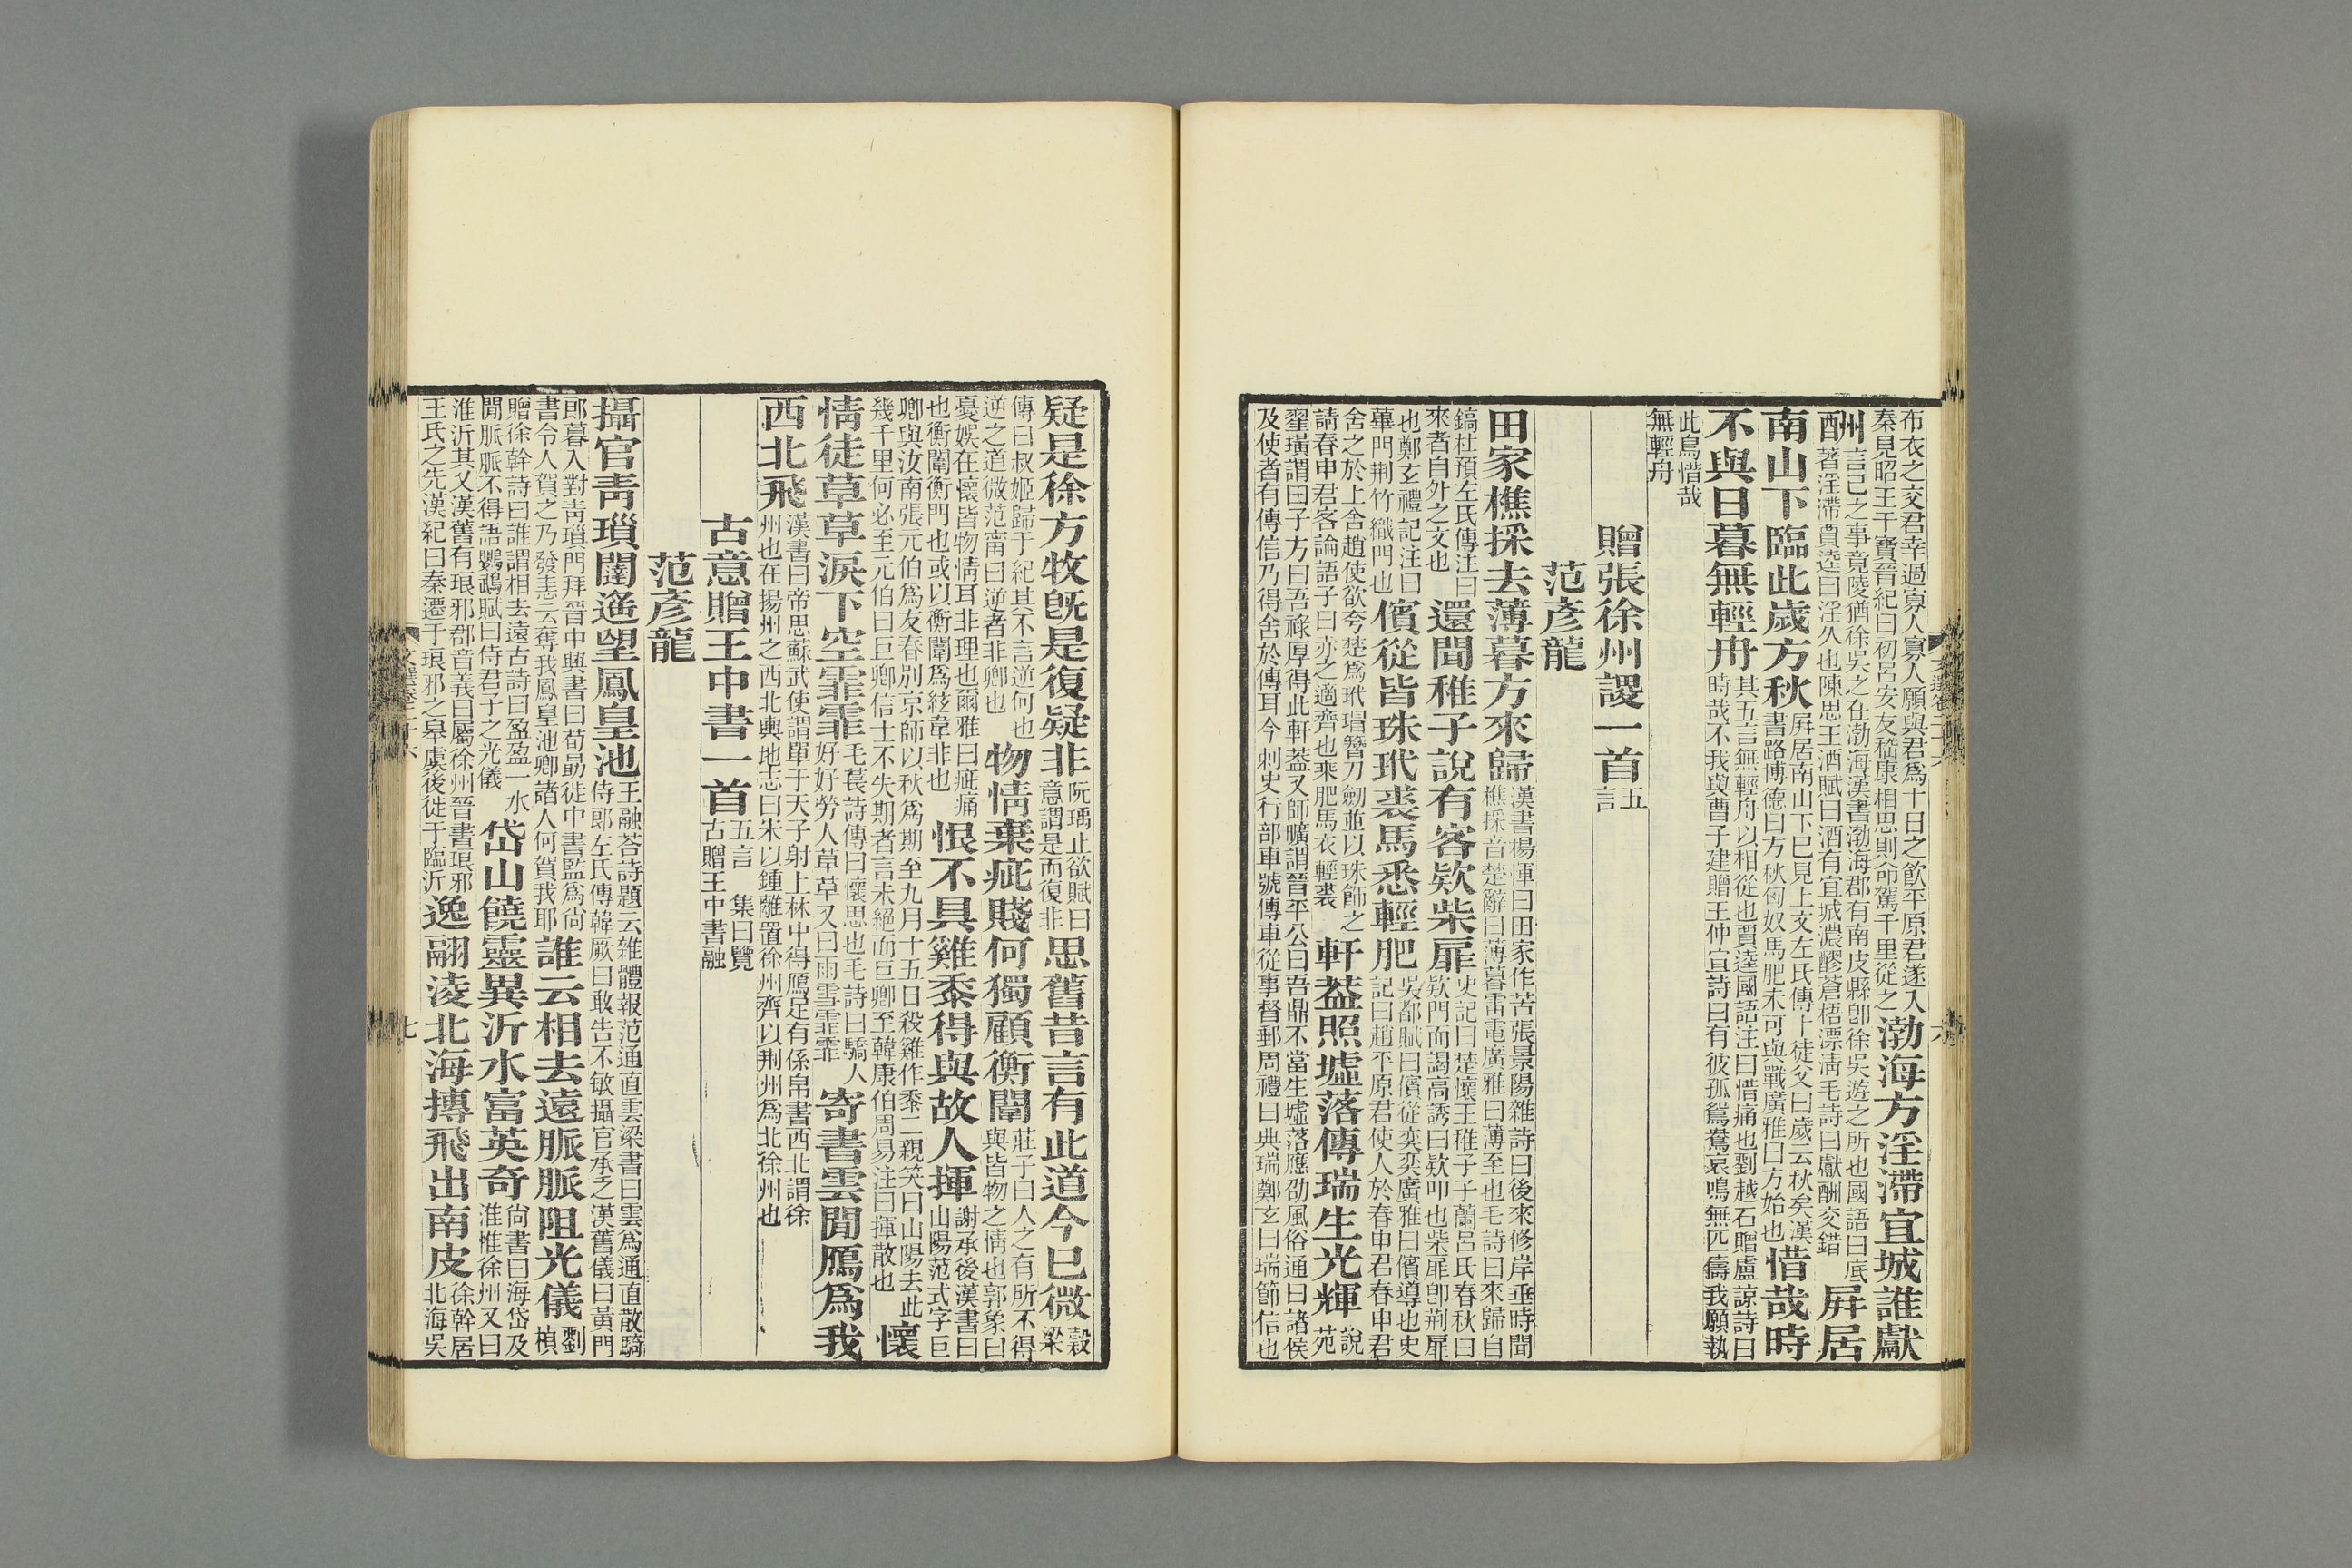 布衣之交君幸過寡人寡人願與君爲十日之飲平原君遂入
秦見昭王干寶晉紀曰初呂安友嵇康相思則命駕千里從之
渤海方淫滯宜城誰獻
酬
言己之事竟陵猶徐吳之在渤海漢書渤海郡有南皮縣卽徐吳遊之所也國語曰底
著淫滯賈逵曰淫久也陳思王酒賦曰酒有宜城濃醪蒼梧漂淸毛詩曰獻酬交錯
屛居
南山下臨此歲方秋
屛居南山下已見上文左氏傳卜徒父曰歲云秋矣漢
書路博德曰方秋匈奴馬肥未可與戰廣雅曰方始也
惜哉時
不與日暮無輕舟
時哉不我與曹子建贈王仲宣詩曰有彼孤鴛鴦哀鳴無匹儔我願執
其五言無輕舟以相從也賈逵國語注曰惜痛也劉越石贈盧諒詩曰
此鳥惜哉
無輕舟
贈張徐州謖一首
五
言
范彥龍
田家樵採去薄暮方來歸
漢書楊惲曰田家作苦張景陽雜詩曰後來修岸垂時聞
樵採音楚辭曰薄暮雷電廣雅曰薄至也毛詩曰來歸自
鎬杜預左氏傳注曰
來者自外之文也
還聞稚子說有客欵柴扉
史記曰楚懷王稚子子蘭呂氏春秋曰
欵門而謁高誘曰欵叩也柴扉卽荆扉
也鄭玄禮記注曰
蓽門荆竹織門也
儐從皆珠玳裘馬悉輕肥
吳都賦曰儐從奕奕廣雅曰儐導也史
記曰趙平原君使人於春申君春申君
舍之於上舍趙使欲夸楚爲玳瑁簪刀劒並以珠飾之
請春申君客論語子曰赤之適齊也乘肥馬衣輕裘
軒葢照墟落傳瑞生光輝
說
苑
翟璜謂曰子方曰吾祿厚得此軒葢又師曠謂晉平公曰吾鼎不當生墟落應劭風俗通曰諸侯
及使者有傳信乃得舍於傳耳今刺史行部車號傳車從事督郵周禮曰典瑞鄭玄曰瑞節信也
疑是徐方牧旣是復疑非
阮瑀止欲賦曰
意謂是而復非
思舊昔言有此道今已微
穀
梁
傳曰叔姬歸于紀其不言逆何也
逆之道微范甯曰逆者非卿也
物情棄疵賤何獨顧衡闈
莊子曰人之有所不得
與皆物之情也郭象曰
憂娛在懷皆物情耳非理也爾雅曰疵痛
也衡闈衡門也或以衡闈爲絃韋非也
恨不具雞黍得與故人揮
謝承後漢書曰
山陽范式字巨
卿與汝南張元伯爲友春別京師以秋爲期至九月十五日殺雞作黍二親笑曰山陽去此
幾千里何必至元伯曰巨卿信士不失期者言未絕而巨卿至韓康伯周易注曰揮散也
懷
情徒草草淚下空霏霏
毛萇詩傳曰懷思也毛詩曰驕人
好好勞人草草又曰雨雪霏霏
寄書雲間鴈爲我
西北飛
漢書曰帝思蘇武使謂單于天子射上林中得鴈足有係帛書西北謂徐
州也在揚州之西北輿地志曰宋以鍾離置徐州齊以荆州爲北徐州也
古意贈王中書一首
五言 集曰覽
古贈王中書融
范彥龍
攝官靑瑣闥遙望鳳皇池
王融荅詩題云雜體報范通直雲梁書曰雲爲通直散騎
侍郎左氏傳韓厥曰敢告不敏攝官承乏漢舊儀曰黃門
郎暮入對靑瑣門拜晉中興書曰荀勗從中書監爲尙
書令人賀之乃發恚云奪我鳳皇池卿諸人何賀我耶
誰云相去遠脈脈阻光儀
劉
楨
贈徐幹詩曰誰謂相去遠古詩曰盈盈一水
閒脈脈不得語鸚鵡賦曰侍君子之光儀
岱山饒靈異沂水富英奇
尙書曰海岱及
淮惟徐州又曰
淮沂其乂漢舊有琅邪郡音義曰屬徐州晉書琅邪
王氏之先漢紀曰秦遷于琅邪之皋虞後徙于臨沂
逸翮淩北海摶飛出南皮
徐幹居
北海吳
文選卷二十六
六
七